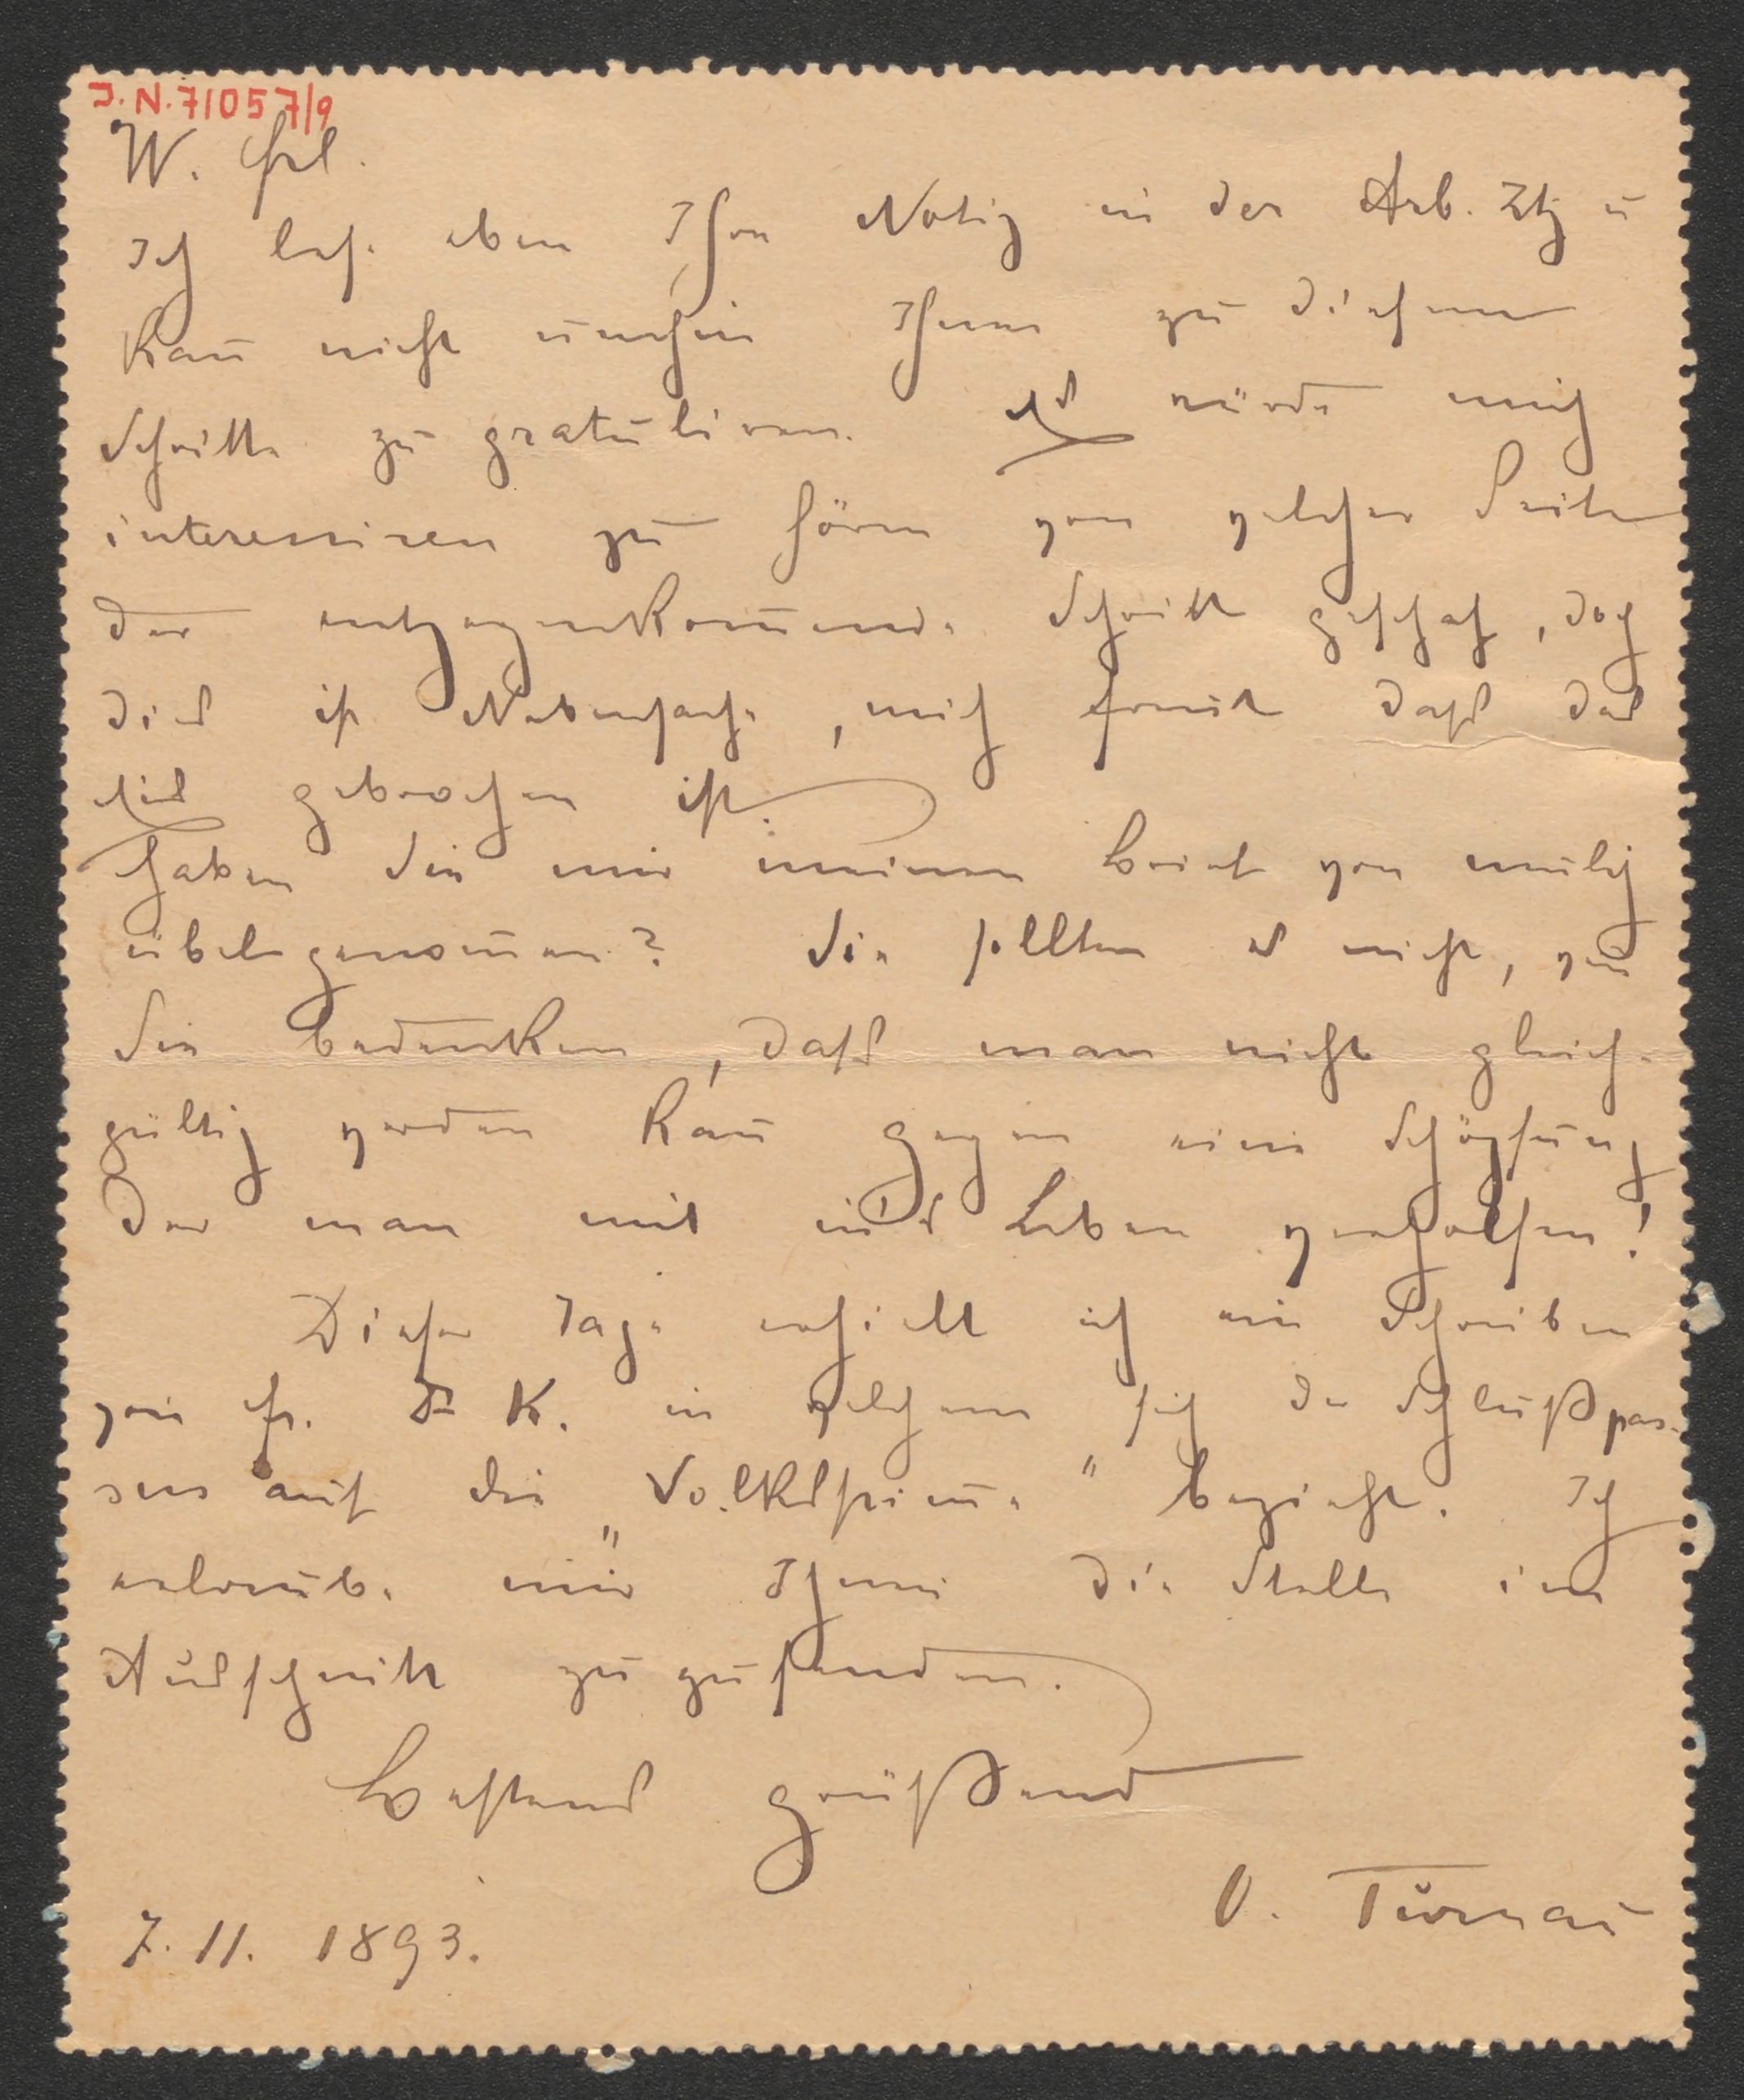 J.N. 71057/9
W. Frl.
Ich lese eben Ihre Notiz in der Arb. Ztg u
kan̄ nicht umhin Ihnen zu diesem
Schritte zu gratuliren. Es würde mich
interessiren zu hören von welcher Seite
der entgegenkom̄ende Schritt geschah, doch
dies ist Nebensache, mich freut daß das
Eis gebrochen ist.
Haben Sie mir meinen Brief von neulich
übelgenom̄en? Sie sollten es nicht, wen̄
Sie bedenken, daß man nicht gleich-
gültig werden kan̄ gegen eine Schöpfung
der man mit in's Leben verholfen!
Dieser Tage erhielt ich ein Schreiben
von Fr. Dr K. in welchem sich der Schlußpas-
sus auf die „Volksstim̄e" bezieht. Ich
erlaube mir Ihnen die Stelle im
Ausschnitt zuzusenden.
Bestens grüßend
O. Turnau
7. 11. 1893.